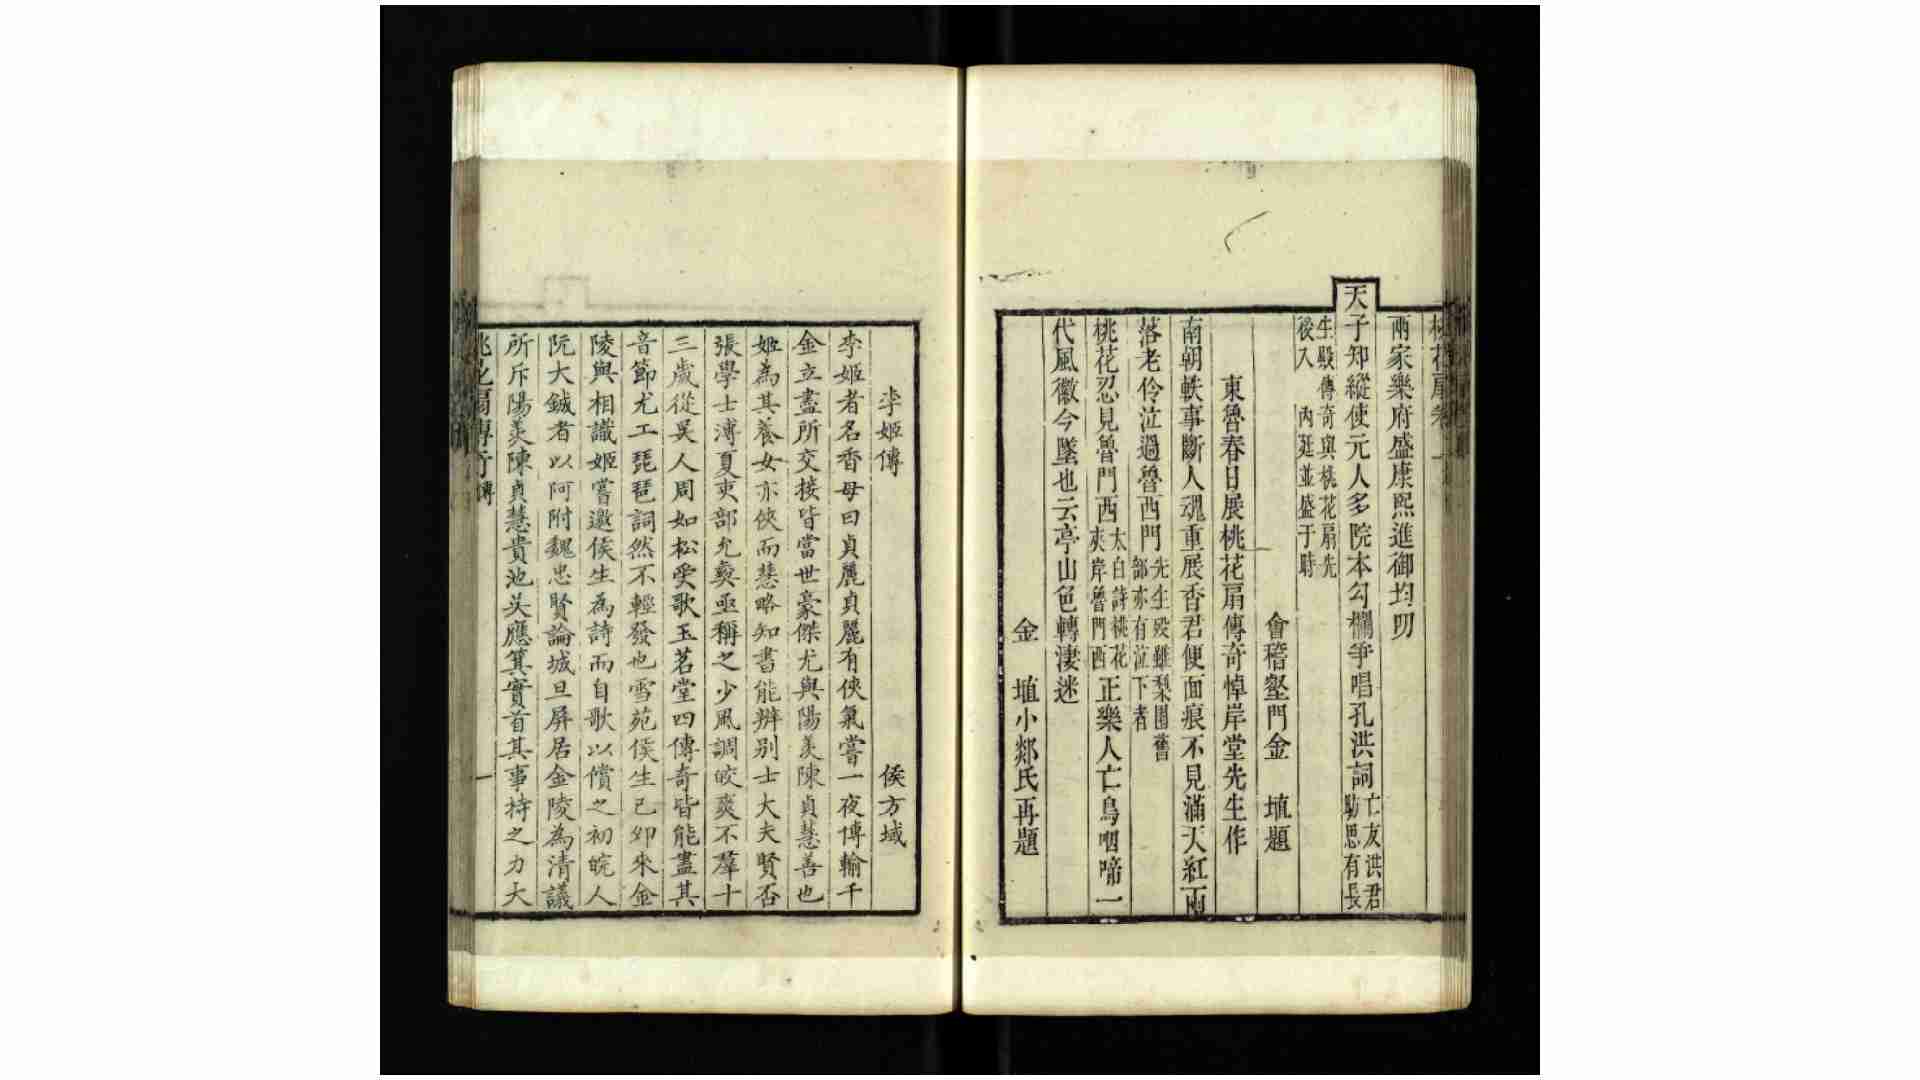 桃花扇卷
兩家樂府盛康熙進御均叨
天子知縱使元人多院本勾欄爭唱孔洪詞亡友洪君昉思有長
生殿傳奇與桃花扇先後入 內廷並盛于時
會稽壑門金 埴題
東魯春日展桃花扇傳奇悼岸堂先生作
南朝軼事斷人魂重展香君便面痕不見滿天紅雨
落老伶泣過魯西門先生歿雖梨園舊部亦有泣下者
桃花忍見魯門西太白詩桃花夾岸魯門西正樂人亡鳥咽啼一
代風徽今墜也云亭山色轉淒迷
金 埴小郯氏再題
李姬傳 侯方域
李姬者名香母曰貞麗貞麗有俠氣嘗一夜博輸千
金立盡所交接皆當世豪傑尤與陽羨陳貞慧善也
姬為其養女亦俠而慧略知書能辨別士大夫賢否
張學士溥夏吏部允彝亟稱之少風調皎爽不羣十
三歲從吳人周如松受歌玉茗堂四傳奇皆能盡其
音節尤工琵琶詞然不輕發也雪苑侯生已卯來金
陵與相識姬嘗邀侯生為詩而自歌以償之初皖人
阮大鋮者以阿附魏忠賢論城旦屏居金陵為清議
所斥陽羨陳貞慧貴池吳應箕實首其事持之力大
桃花扇傳奇 傳 一